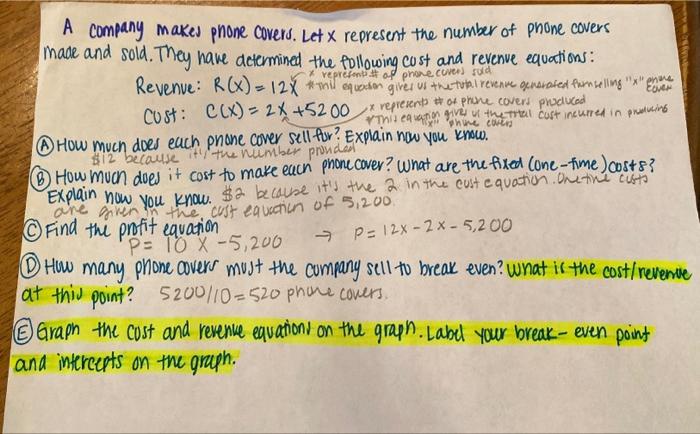 A company makes phone covers. Let x represent the number of phone covers
made and sold. They have determined the following cost and revenue equations:
* represents # of phone covers sold
Revenue: R(x) = 12x * This equation gives us the total revenue generated from selling "x" phone cover
Cost: C(x) = 2x + 5200 * represents # of phone covers produced
* This equation gives us the total cost incurred in producing "x" phone covers
Ⓐ How much does each phone cover sell for? Explain how you know.
$12 because it's the number provided
Ⓑ How much does it cost to make each phone cover? What are the fixed (one-time) costs?
Explain how you know. $2 because it's the 2 in the cost equation. One time costs
are given in the cost equation of 5,200.
Ⓒ Find the profit equation
P = 10 x - 5,200 → P = 12x - 2x - 5,200
Ⓓ How many phone covers must the company sell to break even? What is the cost/revenue
at this point? 5200/10 = 520 phone covers.
Ⓔ Graph the cost and revenue equations on the graph. Label your break-even point
and intercepts on the graph.